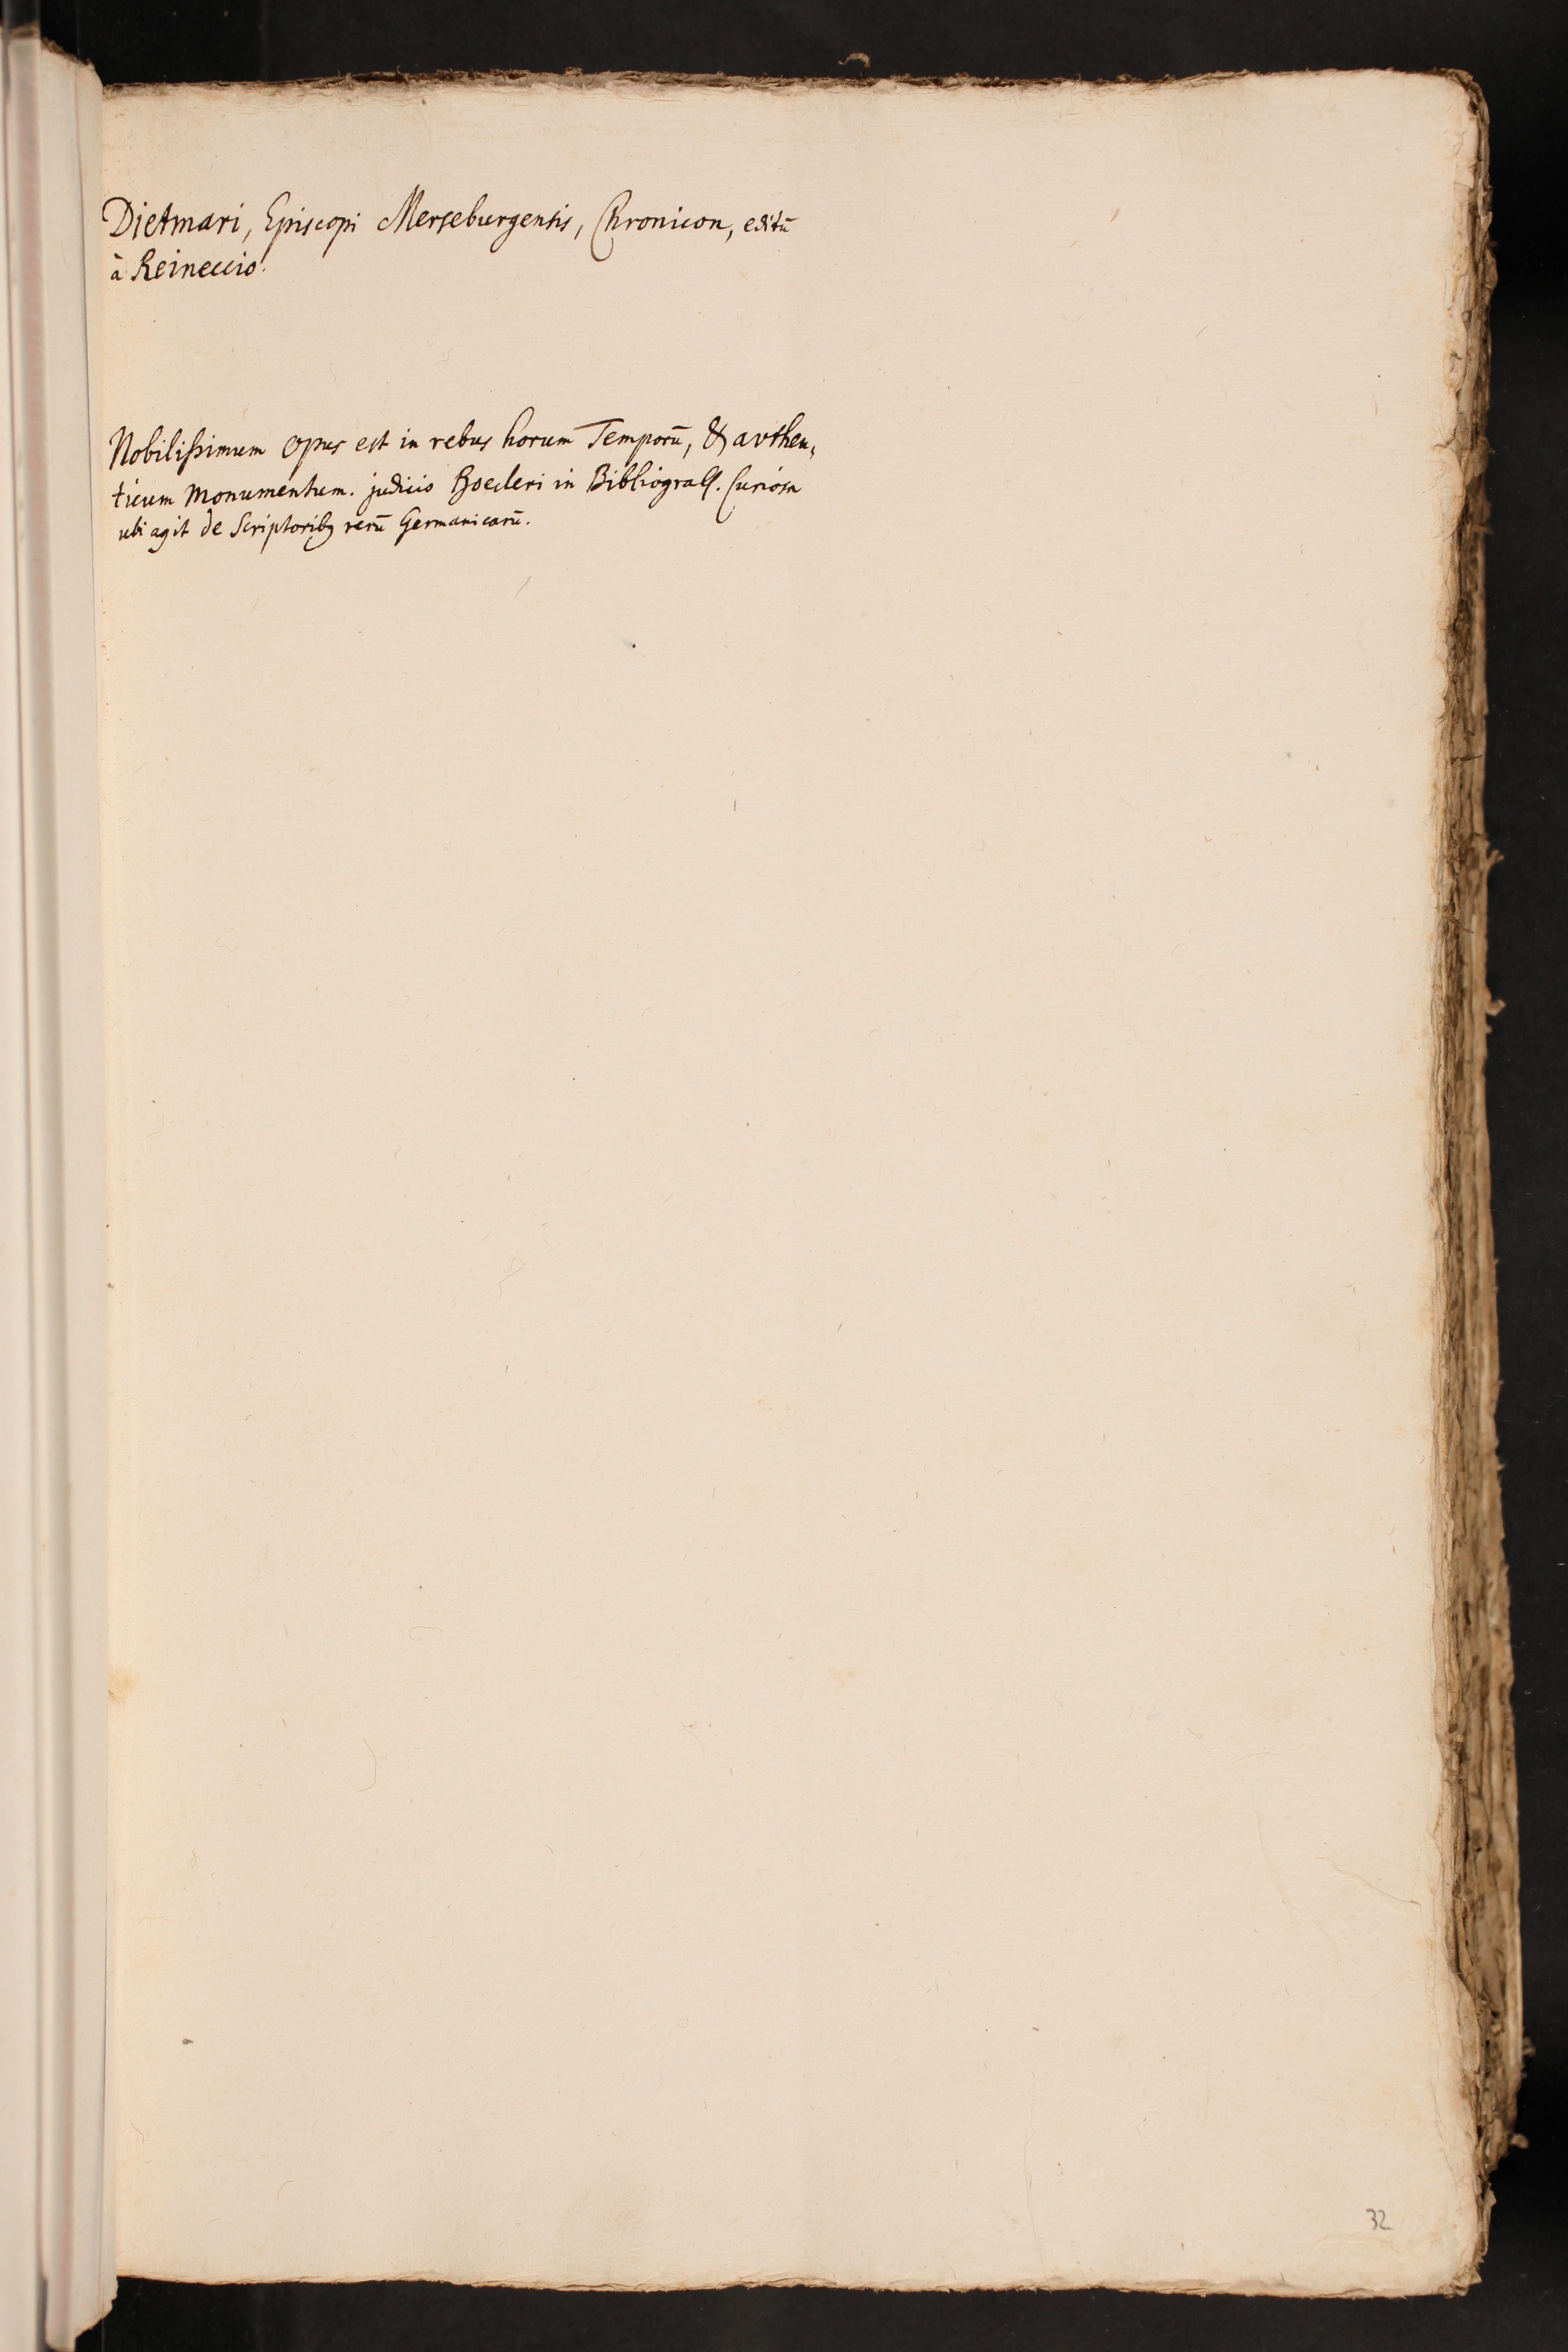 Dietmari, Episcopi Merseburgensis, Chronicon, editū
à Reineccio.
Nobilißimum opus est in rebus horum Temporū, & avthen,
ticum monumentum. judicio Boecleri in Bibliograph. Curiosa
ubi agit de Scriptoribꝫ rerū Germanicarū.
32